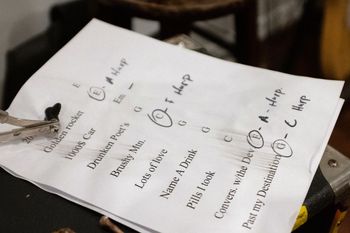 Golden rocken E (E) - A Harp
1000$ Car Em
Drunken Poet's G
Brushy Mtn. (C) - F Harp
Lots of love G
Name A Drink G
Pills I took C
Convers. w/the De (E) - A - Harp
Past my Destination (G) - C Harp